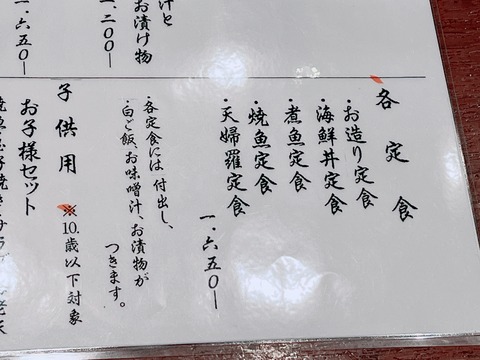 汁と
お漬け物
一、二〇〇―
一、六五〇―
各定食
・お造り定食
・海鮮丼定食
・煮魚定食
・焼魚定食
・天婦羅定食
一、六五〇―
・各定食には 付出し、
・白ご飯、お味噌汁、お漬物が
つきます。
子供用
※10歳以下対象
お子様セット